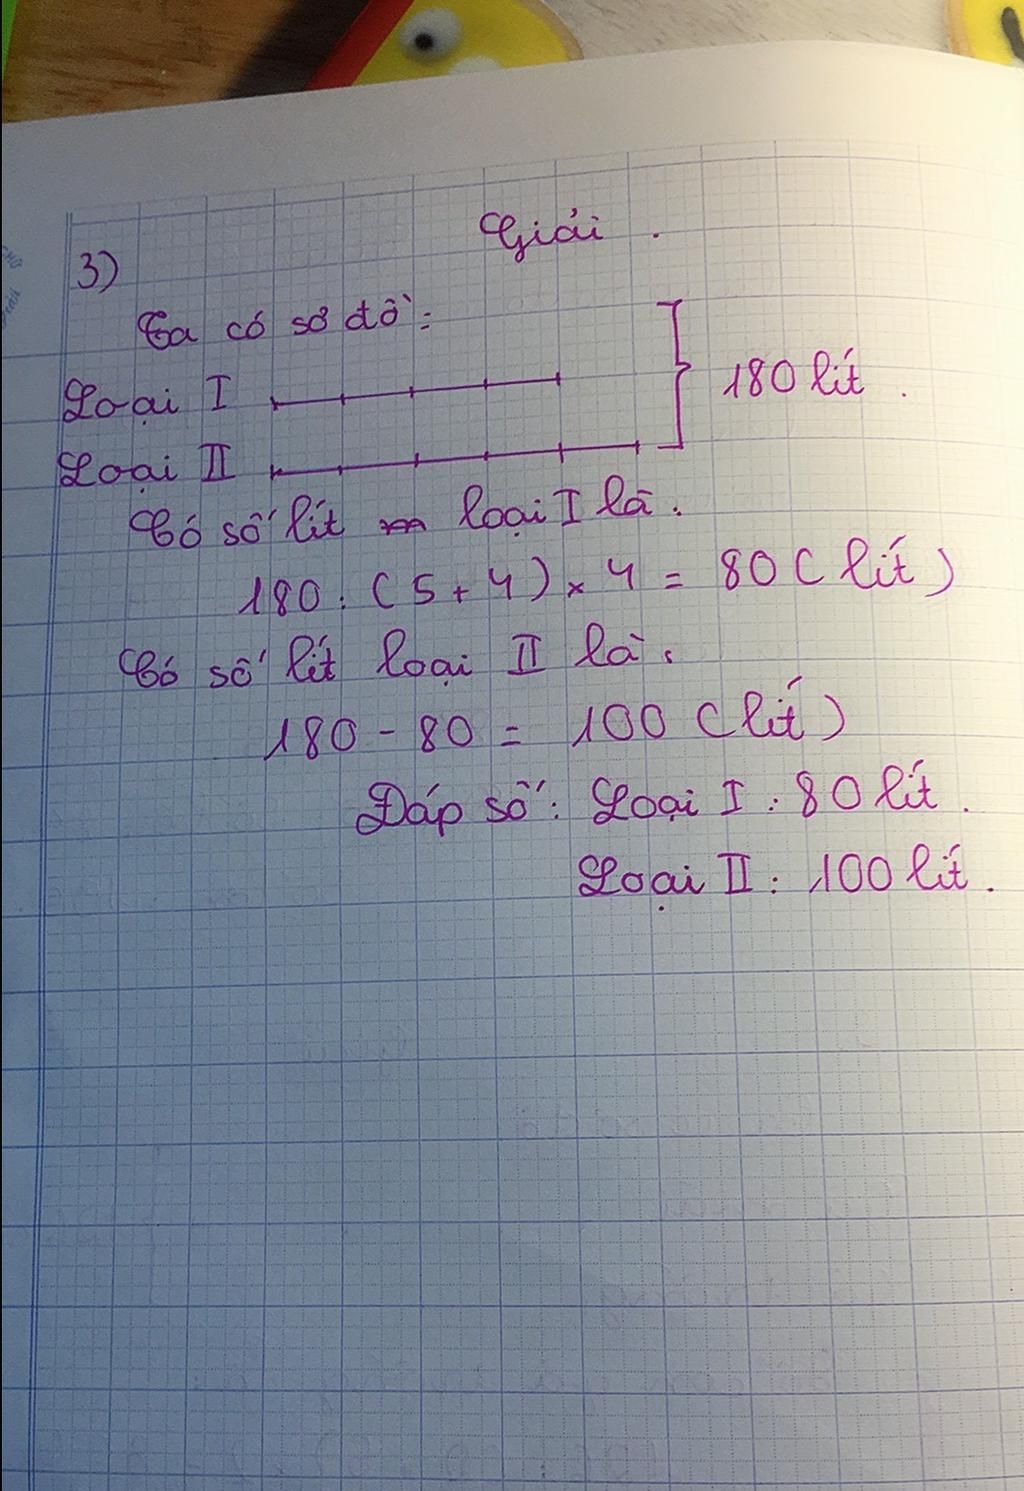 Giải.
3)
Ta có sơ đồ:
Loại I
180 lít.
Loại II
Có số lít loại I là:
180 : (5 + 4) × 4 = 80 (lít)
Có số lít loại II là:
180 - 80 = 100 (lít)
Đáp số: Loại I: 80 lít.
Loại II: 100 lít.